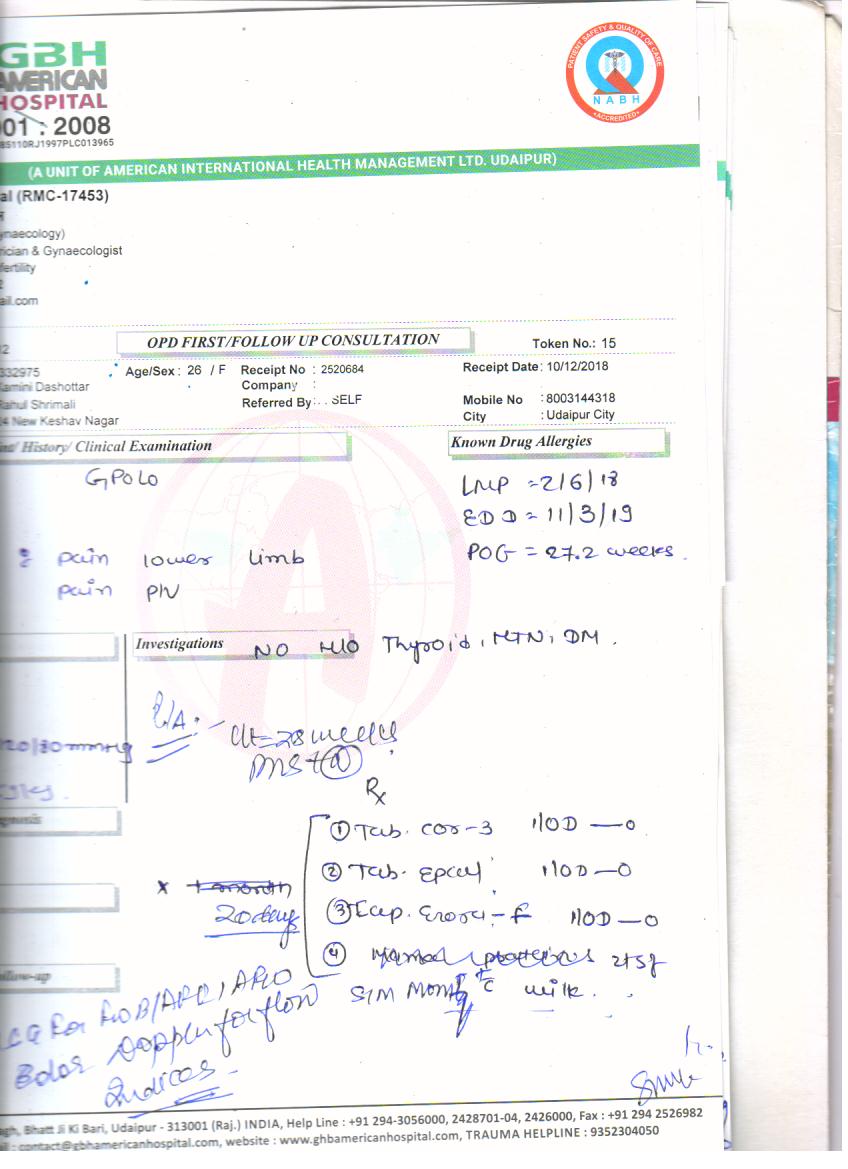 GBH
AMERICAN
HOSPITAL
001 : 2008
85110RJ1997PLC013965
PATIENT SAFETY & QUALITY OF CARE
NABH
ACCREDITED
(A UNIT OF AMERICAN INTERNATIONAL HEALTH MANAGEMENT LTD. UDAIPUR)
al (RMC-17453)
ynaecology)
rician & Gynaecologist
fertility
2
ail.com
OPD FIRST/FOLLOW UP CONSULTATION
Token No.: 15
332975
Age/Sex : 26 / F
Receipt No : 2520684
Receipt Date: 10/12/2018
amini Dashottar
Company :
Rahul Shrimali
Referred By : . . SELF
Mobile No : 8003144318
4 New Keshav Nagar
City : Udaipur City
int/ History/ Clinical Examination
Known Drug Allergies
GP0L0
LMP = 2/6/18
EDD = 11/3/19
POG = 27.2 weeks.
pain lower limb
pain P/V
Investigations
NO H/O Thyroid, HTN, DM.
P/A:-
Ut = 28 weeks
20/80mmHg
Rx
gnosis
① Tab. cor-3 1 OD — 0
② Tab. 1 OD — 0
x 1 month
20 days
③ Cap. 1 OD — 0
④ 2tsf
c milk.
llow-up
Doppler for flow
Indices
agh, Bhatt Ji Ki Bari, Udaipur - 313001 (Raj.) INDIA, Help Line : +91 294-3056000, 2428701-04, 2426000, Fax : +91 294 2526982
il : contact@gbhamericanhospital.com, website : www.ghbamericanhospital.com, TRAUMA HELPLINE : 9352304050